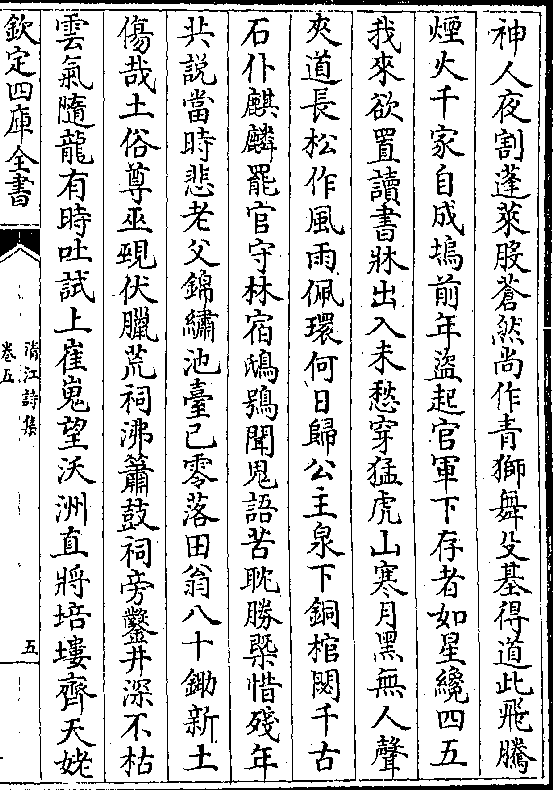 神人夜割蓬萊股蒼然尚作青獅舞㕛基得道此飛騰
煙火千家自成塢前年盜起官軍下存者如星纔四五
我來欲置讀書牀出入未愁穿猛虎山寒月黑無人聲
夾道長松作風雨佩環何日歸公主泉下銅棺閟千古
石仆麒麟罷官守林宿鴟鴞聞鬼語苦耽勝槩惜殘年
共説當時悲老父錦繡池臺已零落田翁八十鋤新土
傷哉土俗尊巫覡伏臘荒祠沸簫鼓祠旁鑿井深不枯
雲氣隨龍有時吐試上崔嵬望沃洲直將培塿齊天姥
欽定四庫全書
清江詩集
卷五
五